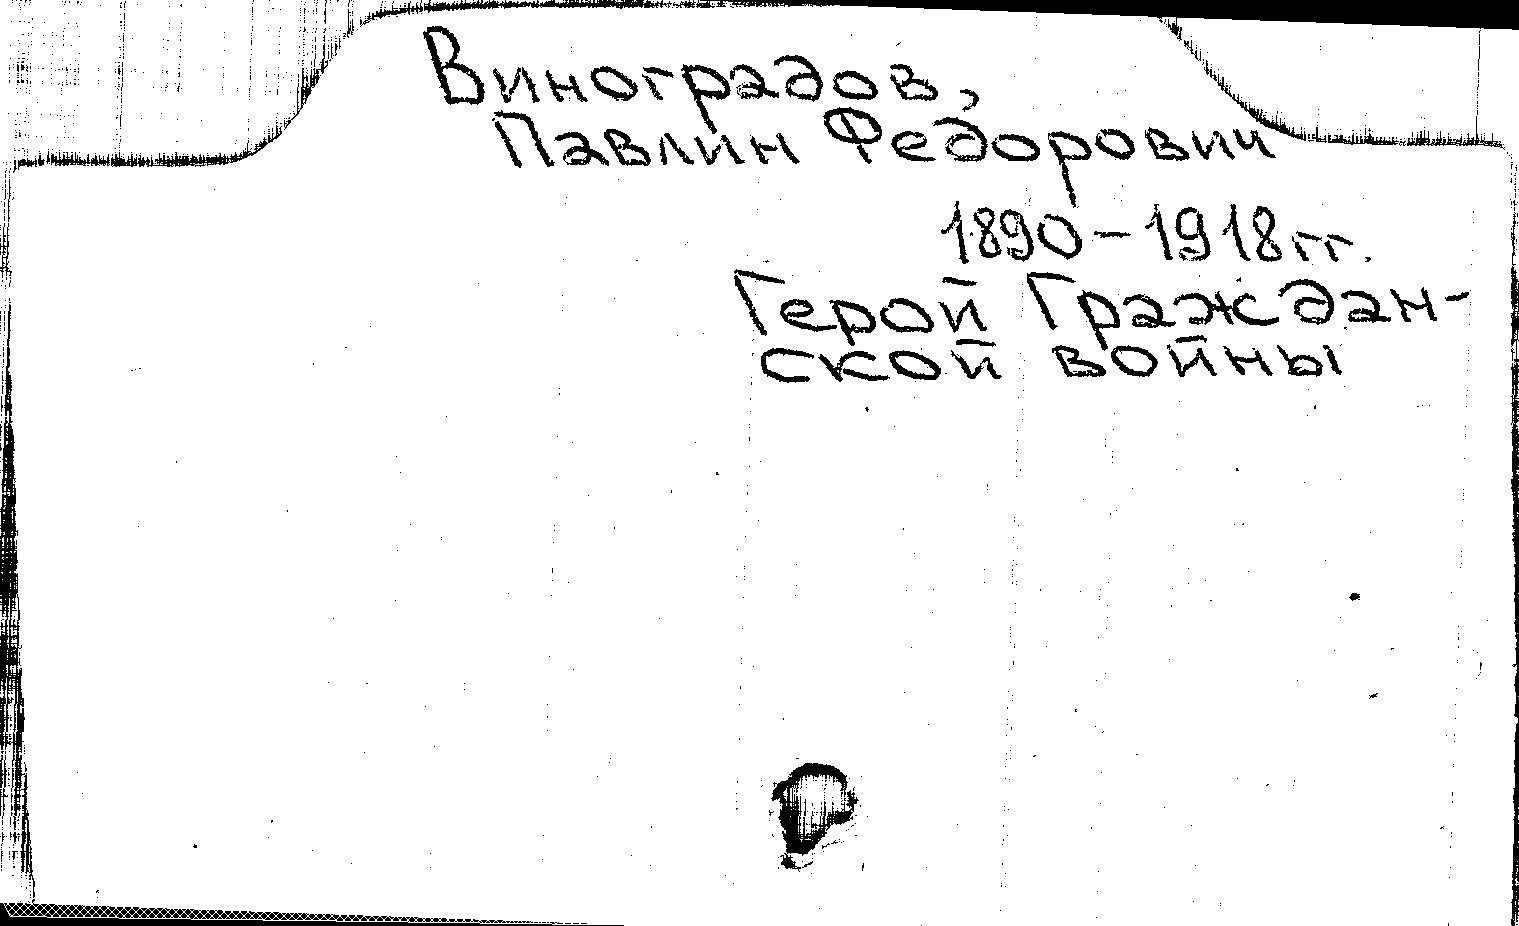 Виноградов,
Павлин Федорович
1890-1918гг.
Герой Граждан-
ской войны